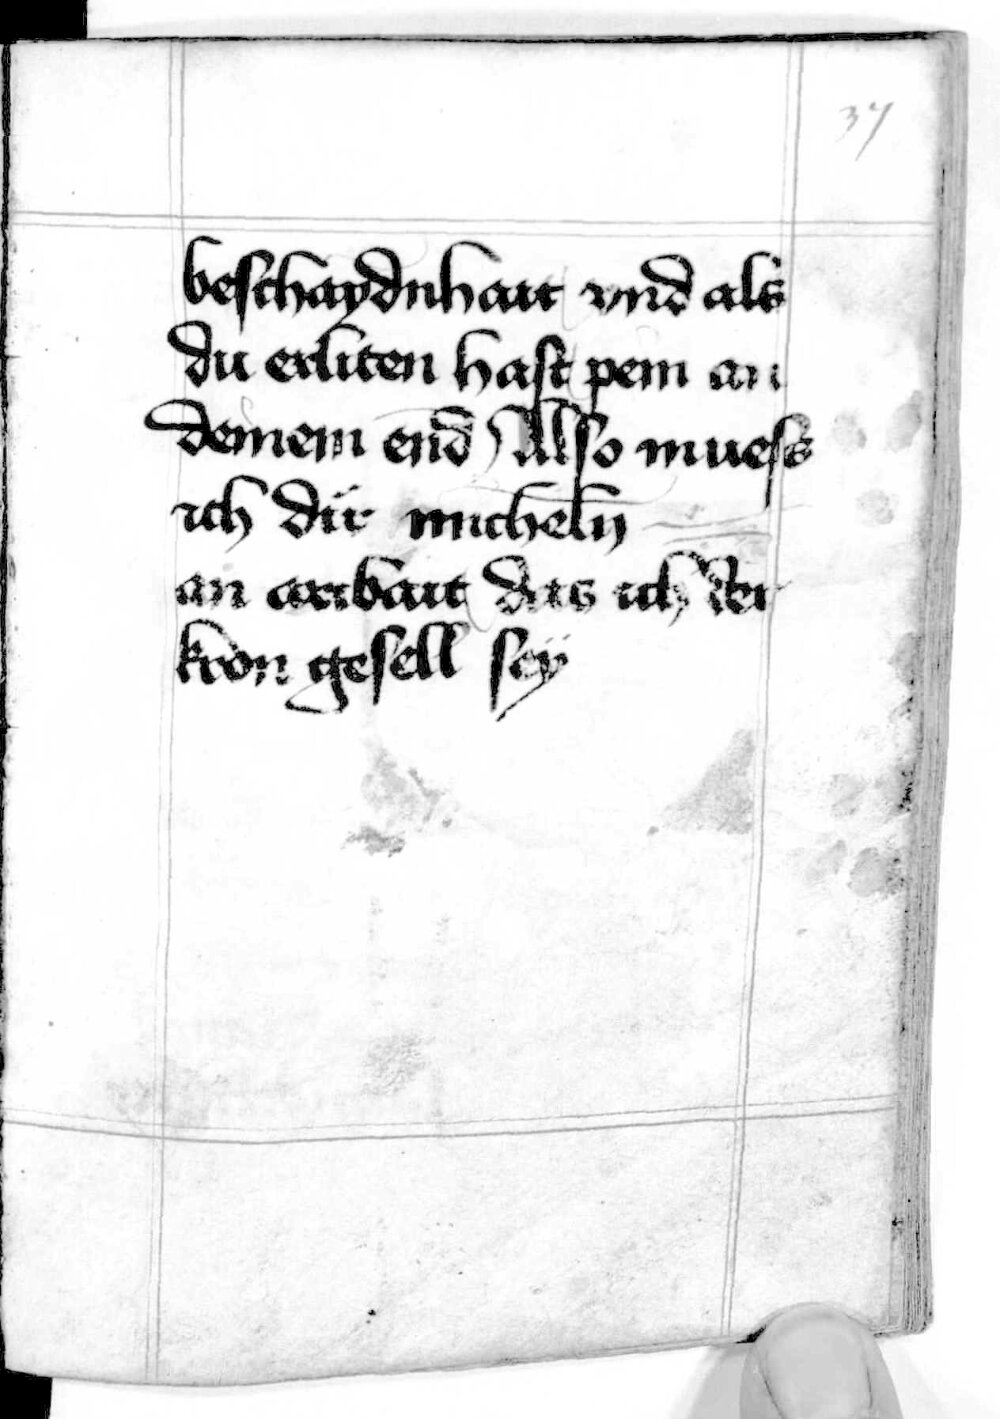 37
beschaydnhait vnd als
du erliten hast pein an
deinem end Also muess
ich dir micheln
an arbait das ich der
kron gesell sey